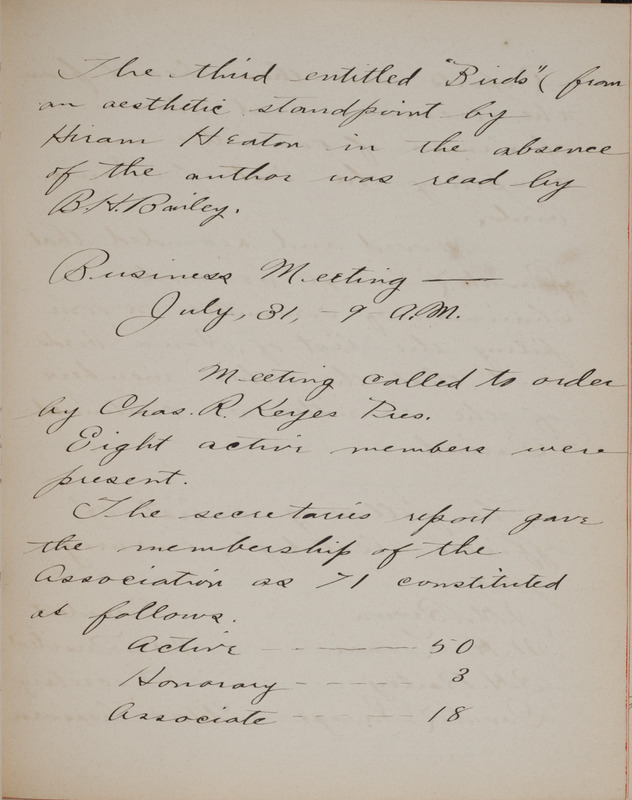 The third entitled "Birds" (from
an aesthetic standpoint by
Hiram Heaton in the absence
of the author was read by
B.H. Bailey.
Business Meeting —
July, 31, - 9 A.M.
Meeting called to order
by Chas. R. Keyes Pres.
Eight active members were
present.
The secretaries report gave
the membership of the
Association as 71 constituted
as follows.
Active - - — 50
Honorary - - - - 3
Associate - - - 18